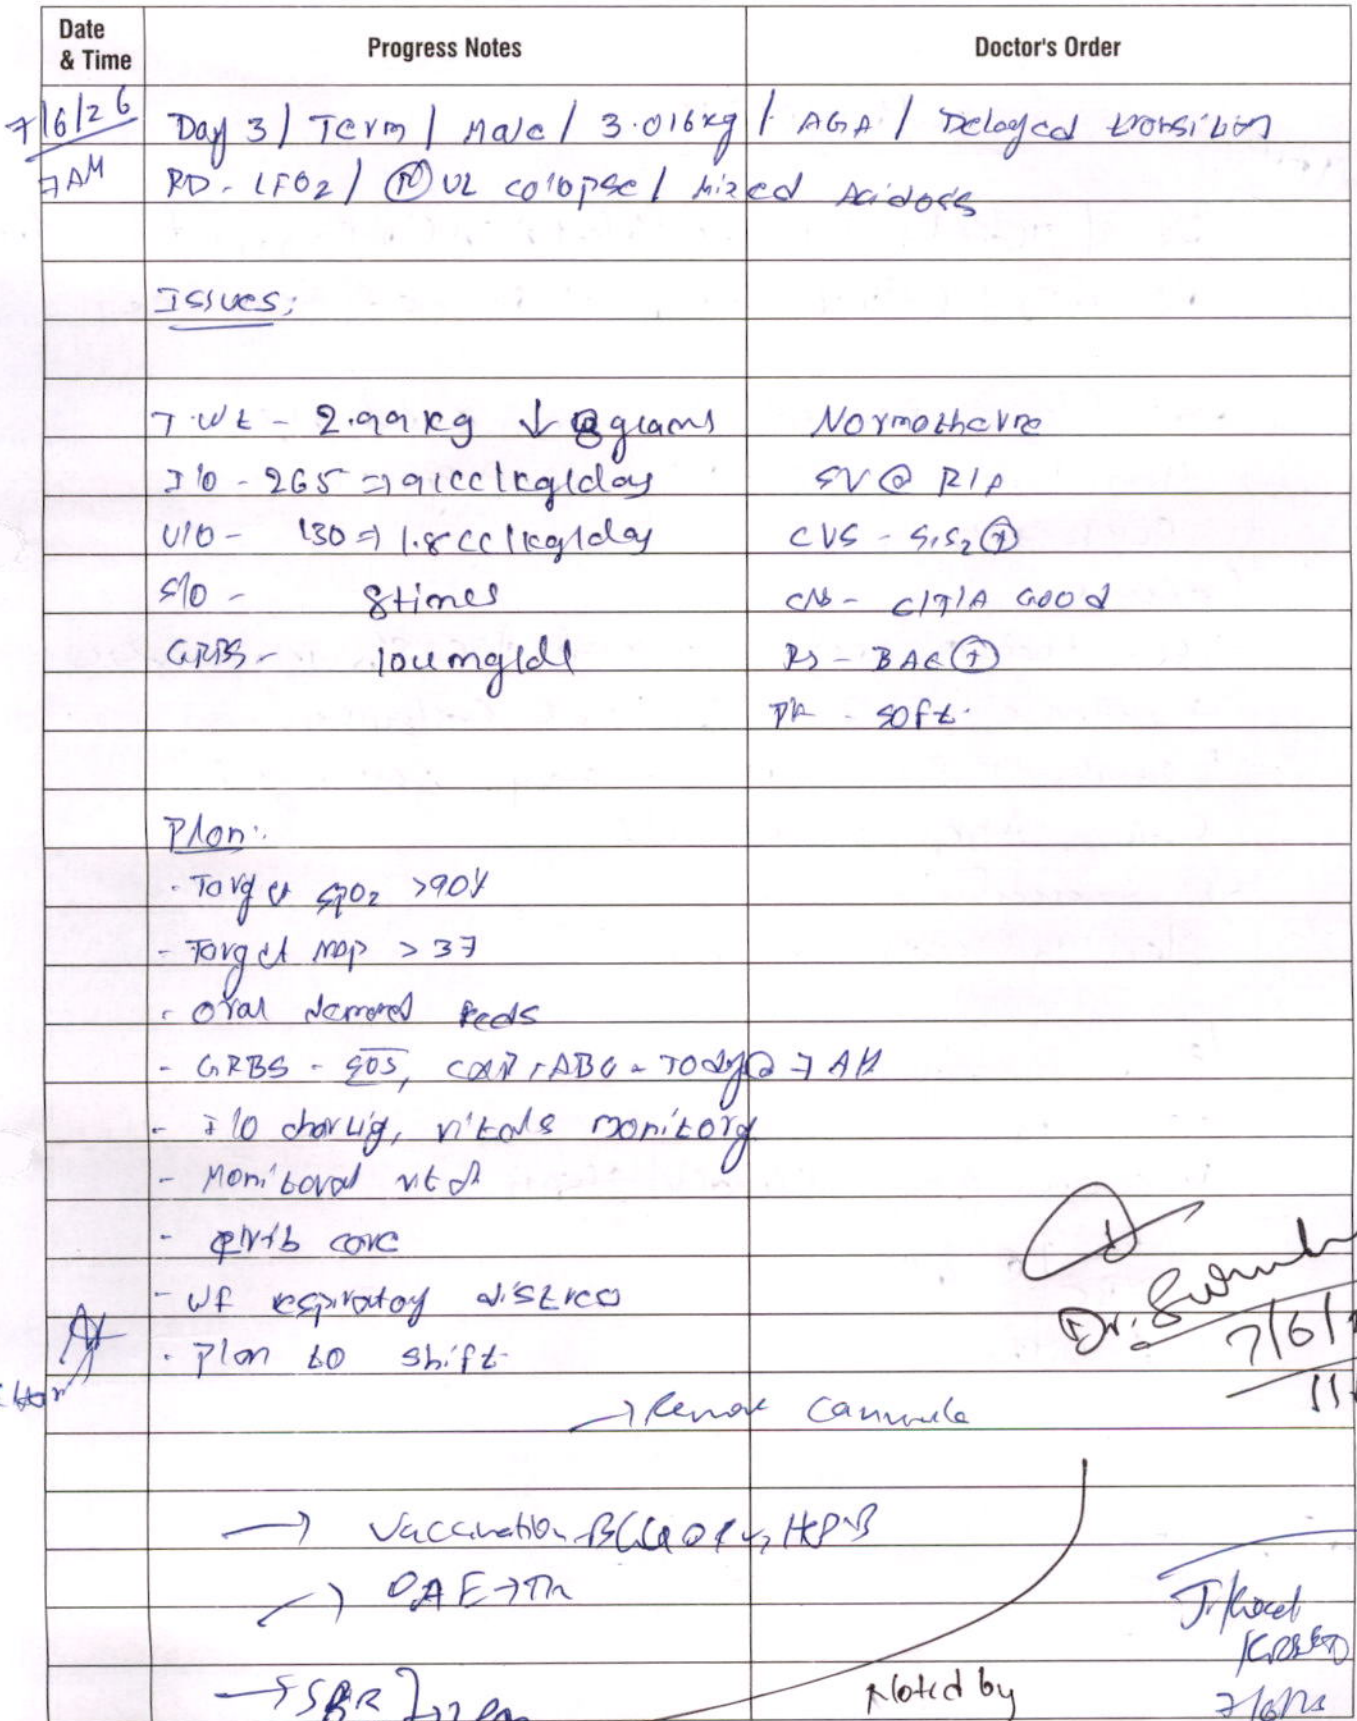 Date & Time Progress Notes Doctor's Order
7/6/26 Day 3 / Term / Male / 3.016kg / AGA / Delayed transition
7AM RD - LFO2 / UL colopse / Mixed Acidosis
Issues:
T.Wt - 2.99kg ↓ grams Normotherme
I/O - 265 => 91cc/kg/day SV @ R/A
U/O - 130 => 1.8cc/kg/day CVS - S1S2 (+)
S/O - 8times CNS - C/T/A Good
GRBS - mg/dl RS - BAE (+)
PA - soft.
Plan:
- Target SPO2 >90%
- Target MAP > 37
- Oral demand feeds
- GRBS - SOS, ABG - Today @ 7 AM
- I/O chartig, vitals monitorg
- Monitoral
- care
- Wf respiratory distress
- Plan to shift
→ Remove Cannula
→ Vaccination - BCG OPV, HPB
→ OAE →
→ SBR
Dr.
7/6/
11
Noted by